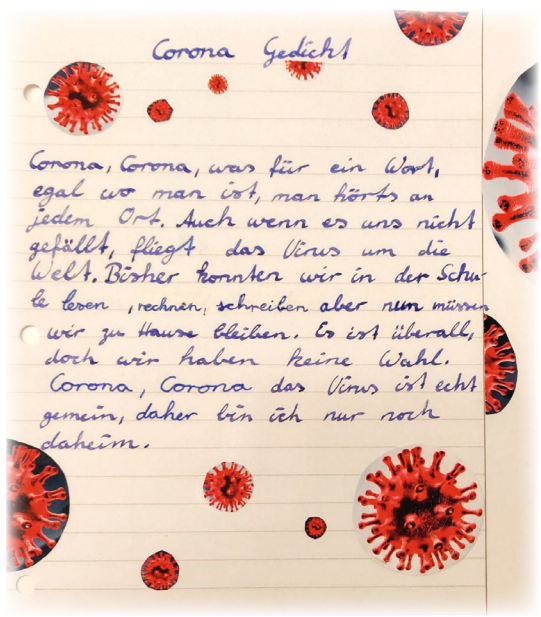 Corona Gedicht
Corona, Corona, was für ein Wort,
egal wo man ist, man hörts an
jedem Ort. Auch wenn es uns nicht
gefällt, fliegt das Virus um die
Welt. Bisher konnten wir in der Schu-
le lesen, rechnen, schreiben aber nun müssen
wir zu Hause bleiben. Es ist überall,
doch wir haben keine Wahl.
Corona, Corona das Virus ist echt
gemein, daher bin ich nur noch
daheim.